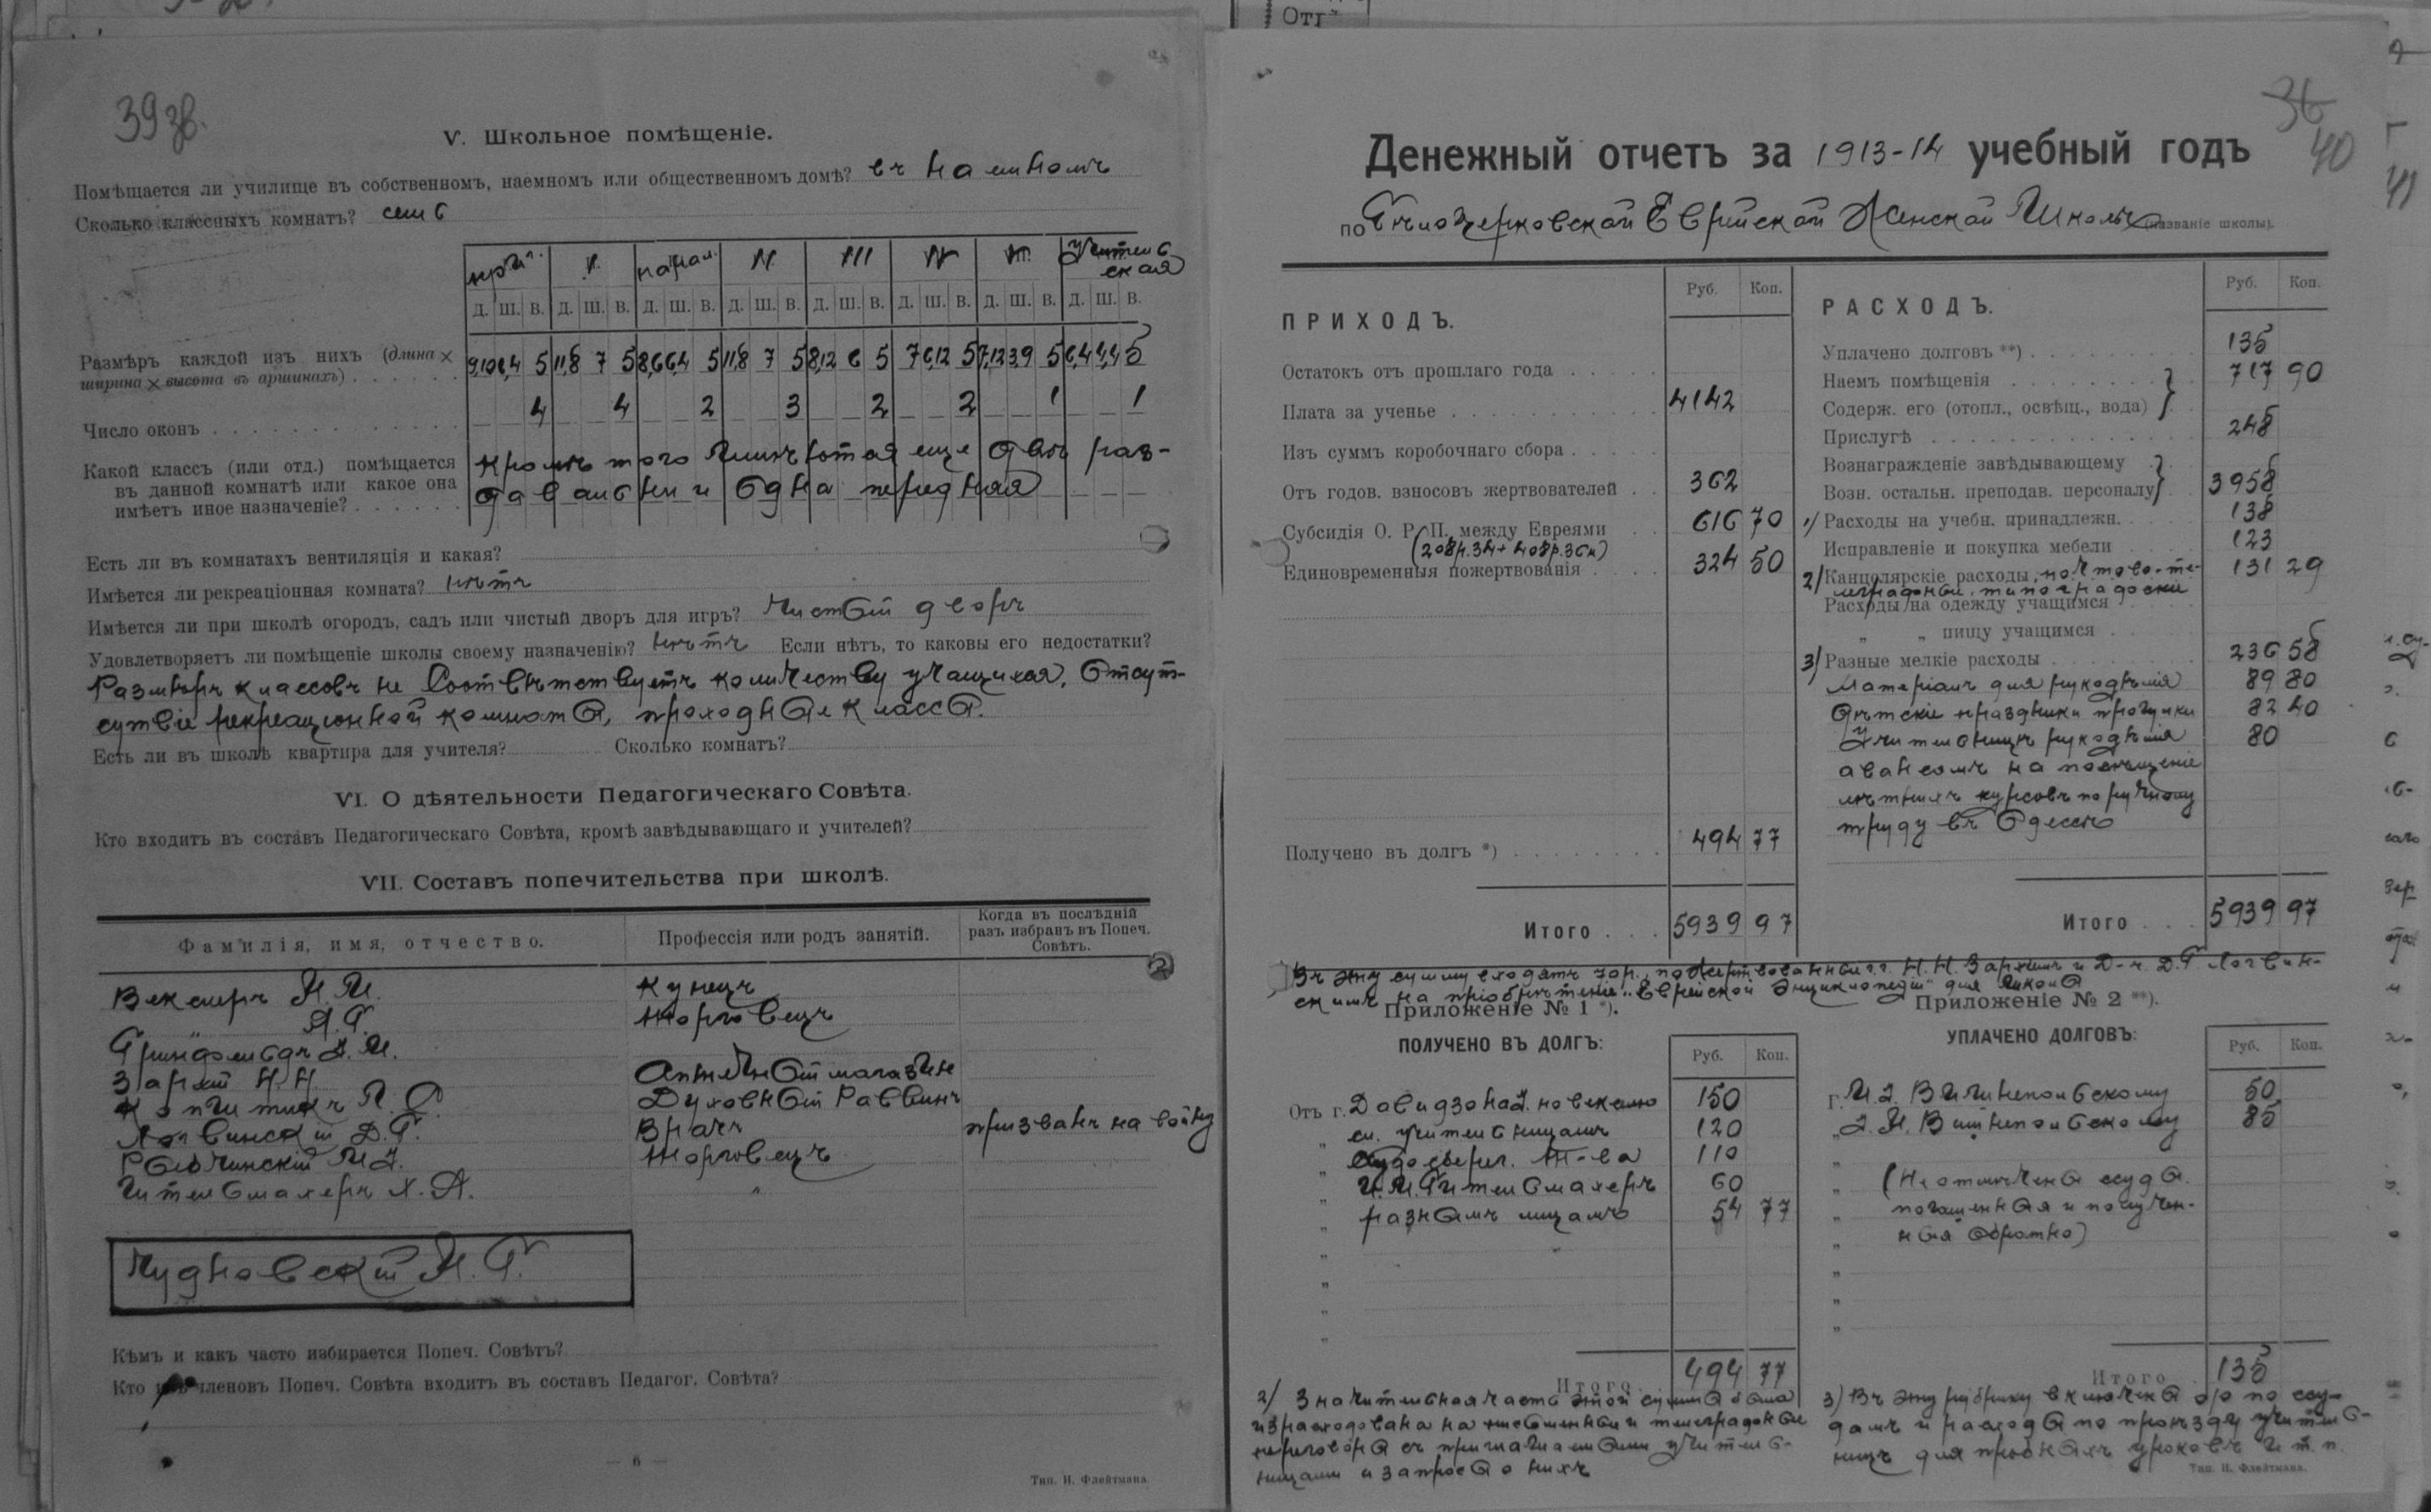 39 зв.
V. Школьное помѣщеніе.
Помѣщается ли училище въ собственномъ, наемномъ или общественномъ домѣ? въ наемномъ
Сколько классныхъ комнатъ? семь
приг. I. парал. II. III IV Учительская
Д. Ш. В. Д. Ш. В. Д. Ш. В. Д. Ш. В. Д. Ш. В. Д. Ш. В. Д. Ш. В. Д. Ш. В.
Размѣръ каждой изъ нихъ (длина ×
ширина × высота въ аршинахъ)
Число оконъ 4 4 2 3 2 2 1 1
Какой классъ (или отд.) помѣщается
въ данной комнатѣ или какое она
имѣетъ иное назначеніе?
кромѣ того имѣются еще двѣ раз-
давальни и одна передняя
Есть ли въ комнатахъ вентиляція и какая?
Имѣется ли рекреаціонная комната? нѣтъ
Имѣется ли при школѣ огородъ, садъ или чистый дворъ для игръ? Чистый дворъ
Удовлетворяетъ ли помѣщеніе школы своему назначенію? нѣтъ Если нѣтъ, то каковы его недостатки?
Размѣръ классовъ не соотвѣтствуетъ количеству учащихся, отсут-
сутвіе рекреаціонной комнаты, проходные классы.
Есть ли въ школѣ квартира для учителя? Сколько комнатъ?
VI. О дѣятельности Педагогическаго Совѣта.
Кто входитъ въ составъ Педагогическаго Совѣта, кромѣ завѣдывающаго и учителей?
VII. Составъ попечительства при школѣ.
Фамилія, имя, отчество. Профессія или родъ занятій. Когда въ послѣдній
разъ избранъ въ Попеч.
Совѣтъ.
Векслеръ купецъ
" торговецъ
Гринфельдъ
Зархій Н. Н. Аптечный магазинъ
Духовный Раввинъ
Логвинскій Д. Г. Врачъ призванъ на войну
торговецъ
Гительмахеръ "
Чудновскій
Кѣмъ и какъ часто избирается Попеч. Совѣтъ?
Кто изъ членовъ Попеч. Совѣта входитъ въ составъ Педагог. Совѣта?
— 6 —
Тип. И. Флейтмана.
36
40
41
Денежный отчетъ за 1913-14 учебный годъ
по Бѣлоцерковской Еврейской Женской Школѣ (названіе школы).
ПРИХОДЪ. Руб. Коп.
Остатокъ отъ прошлаго года
Плата за ученье 4142
Изъ суммъ коробочнаго сбора
Отъ годов. взносовъ жертвователей 362
Субсидія О. Р. П. между Евреями 616 70
Единовременныя пожертвованія 324 50
Получено въ долгъ *) 494 77
Итого 5939 97
РАСХОДЪ. Руб. Коп.
Уплачено долговъ **) 135
Наемъ помѣщенія 717 90
Содерж. его (отопл., освѣщ., вода)
Прислугѣ 248
Вознагражденіе завѣдывающему
Возн. остальн. преподав. персоналу 3958
1/ Расходы на учебн. принадлежн. 138
Исправленіе и покупка мебели 123
2/ Канцелярскіе расходы, почтово-те- 131 29
леграфные, типографскіе
Расходы на одежду учащимся
" " пищу учащимся
3/ Разные мелкіе расходы 236 58
Матеріалъ для рукодѣлія 89 80
Дѣтскіе праздники прогулки 82 40
Учительницѣ рукодѣлія 80
авансомъ на посѣщеніе
лѣтнихъ курсовъ по ручному
труду въ Одессѣ
Итого 5939 97
Въ эту сумму входятъ 70р., пожертвованные г.г. Н. Н. Зархіемъ и Д-ч. Д. Г. Логвин-
скимъ на пріобрѣтеніе „Еврейской Энциклопедіи" для школы
Приложеніе № 1 *).
ПОЛУЧЕНО ВЪ ДОЛГЪ: Руб. Коп.
Отъ г. Давидзона по векселю 150
" учительницамъ 120
" Ссудосберег. т-ва 110
" Гительмахеръ 60
" разнымъ лицамъ 54 77
Итого 494 77
Приложеніе № 2 **).
УПЛАЧЕНО ДОЛГОВЪ: Руб. Коп.
г. 50
" 85
" (Не отмѣчены ссуды.
" погашенныя и получен-
" ныя обратно)
Итого 135
2/ Значительная часть этой суммы была
израсходована на письменные и телеграфные
переговоры съ приглашаемыми учитель-
ницами и запросы о нихъ
3) Въ эту рубрику включены о/о по ссу-
дамъ и расходы по проѣзду учитель-
ницъ для пробныхъ уроковъ и т. п.
Тип. И. Флейтмана.